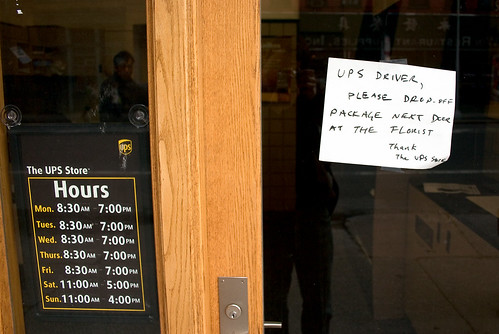 UPS DRIVER,
PLEASE DROP-OFF
PACKAGE NEXT DOOR
AT THE FLORIST
Thank
The UPS Store
ups
The UPS Store
Hours
Mon. 8:30AM - 7:00PM
Tues. 8:30AM - 7:00PM
Wed. 8:30AM - 7:00PM
Thurs. 8:30AM - 7:00PM
Fri. 8:30AM - 7:00PM
Sat. 11:00AM - 5:00PM
Sun. 11:00AM - 4:00PM